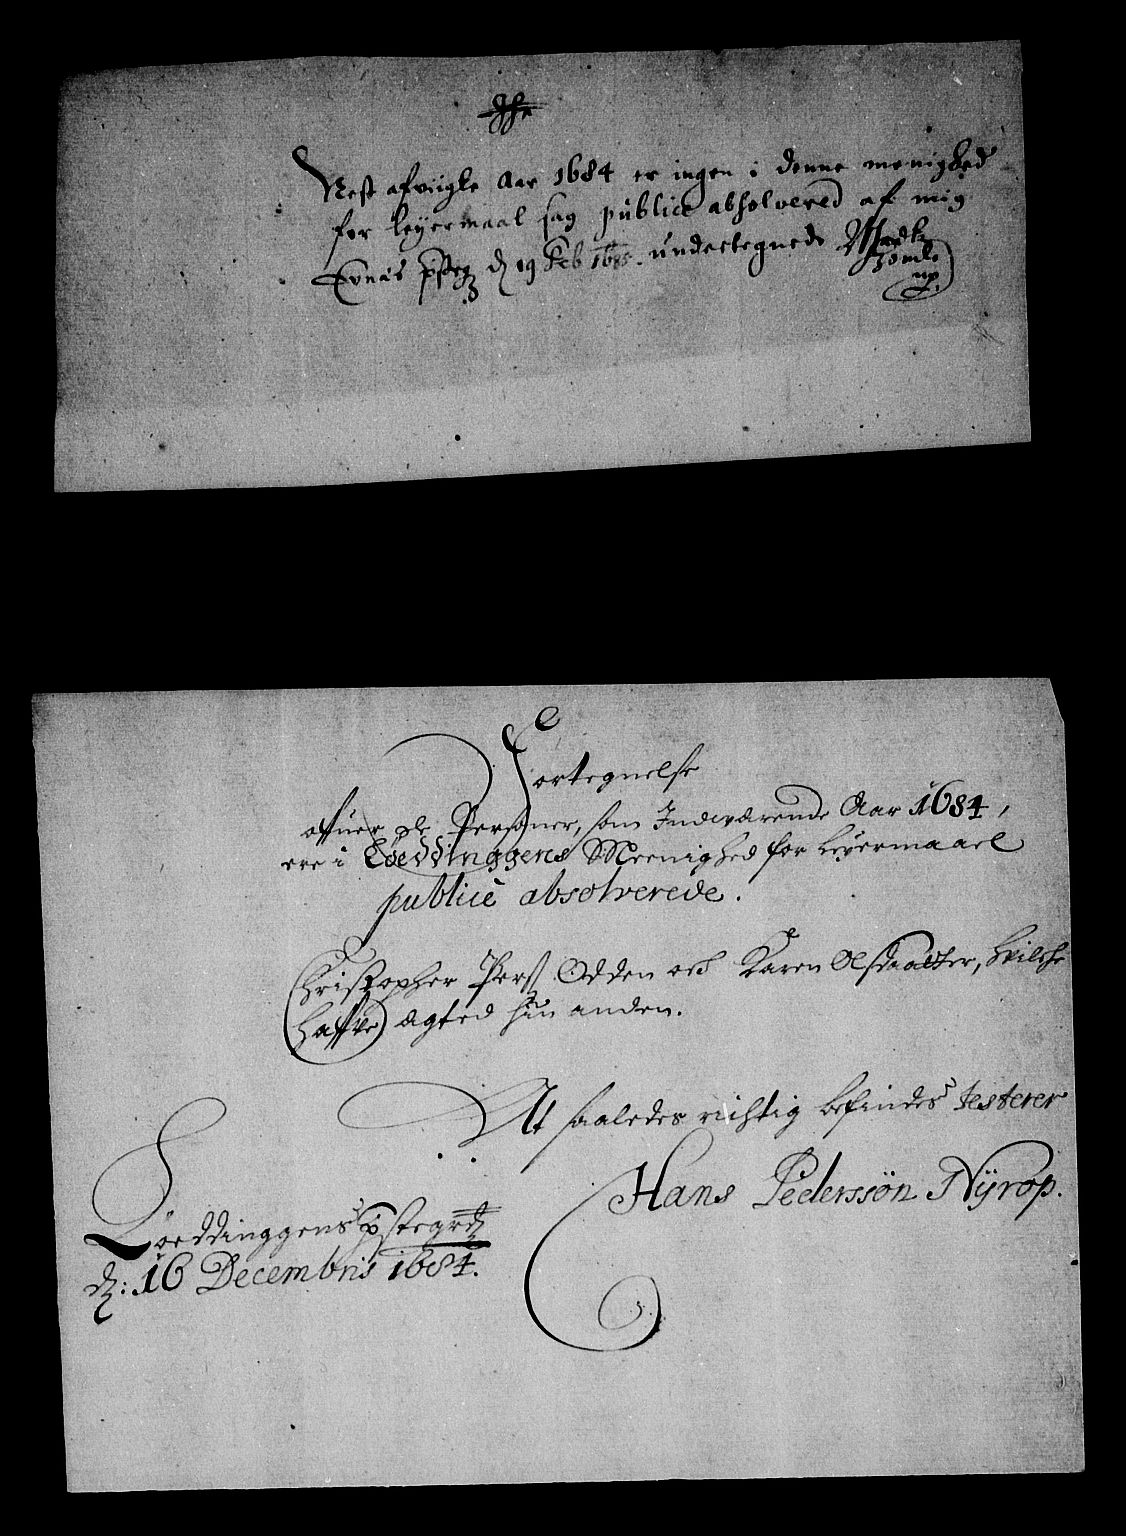 Jhs
Nest afvigte Aar 1684 er ingen i denne menighed
for leyermaal sag publicè absolvered af mig
Evnäs psteg d 19 Feb 1685. undertegnede Madtz
Fortegnelse
offuer de Personer, som Indeværende Aar 1684,
ere i Löeddinggens Meenighed for Leyermaael
publicè absolverede.
Christopher Pers Odden och Karen Olsdaatter, hvilche
haffve ægted hin anden.
At saaledes richtig befindes testerer
Hans Pederssön Nÿrop.
Löeddinggens pstegrd
d: 16 Decembris 1684.